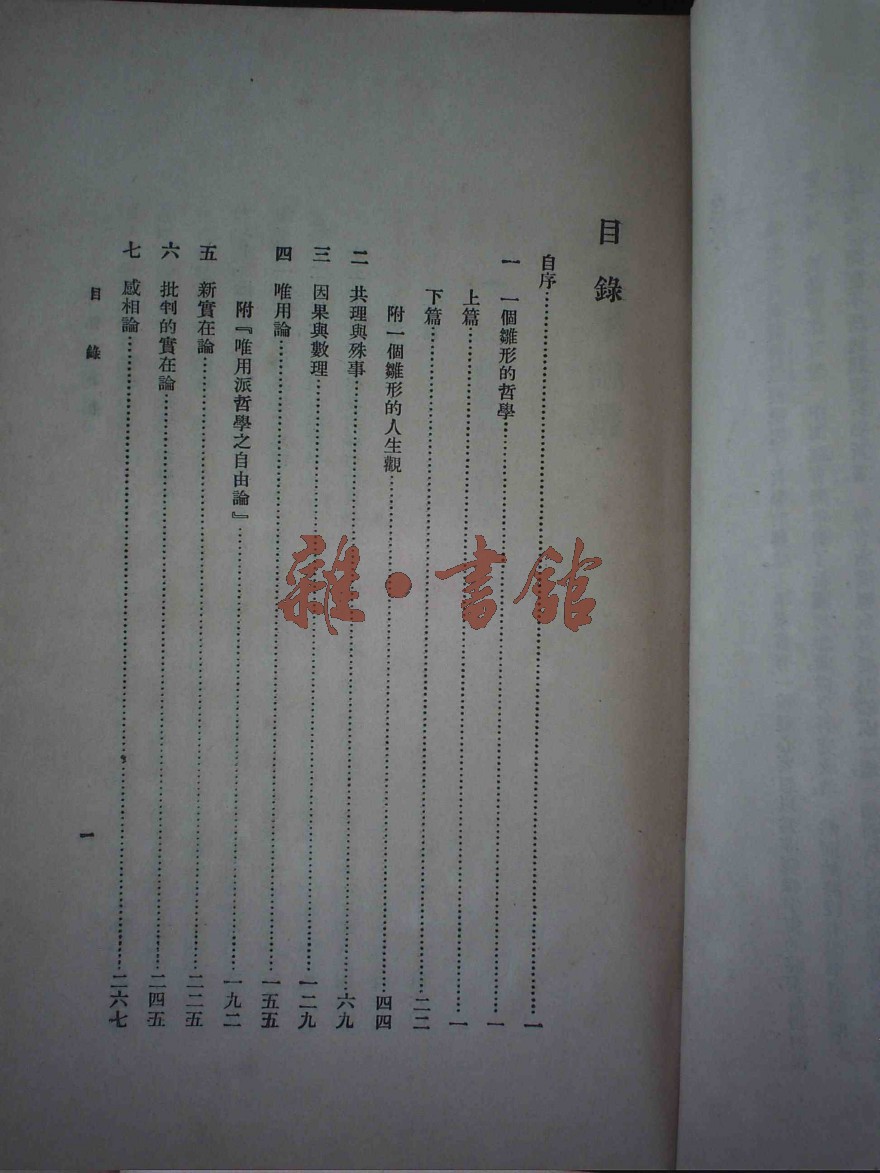 目錄
自序……一
一 一個雛形的哲學……一
上篇……一
下篇……二二
附一個雛形的人生觀……四四
二 共理與殊事……六九
三 因果與數理……一二九
四 唯用論……一五五
附『唯用派哲學之自由論』……一九二
五 新實在論……二二五
六 批判的實在論……二四五
七 感相論……二六七
目錄
一
雜·書館